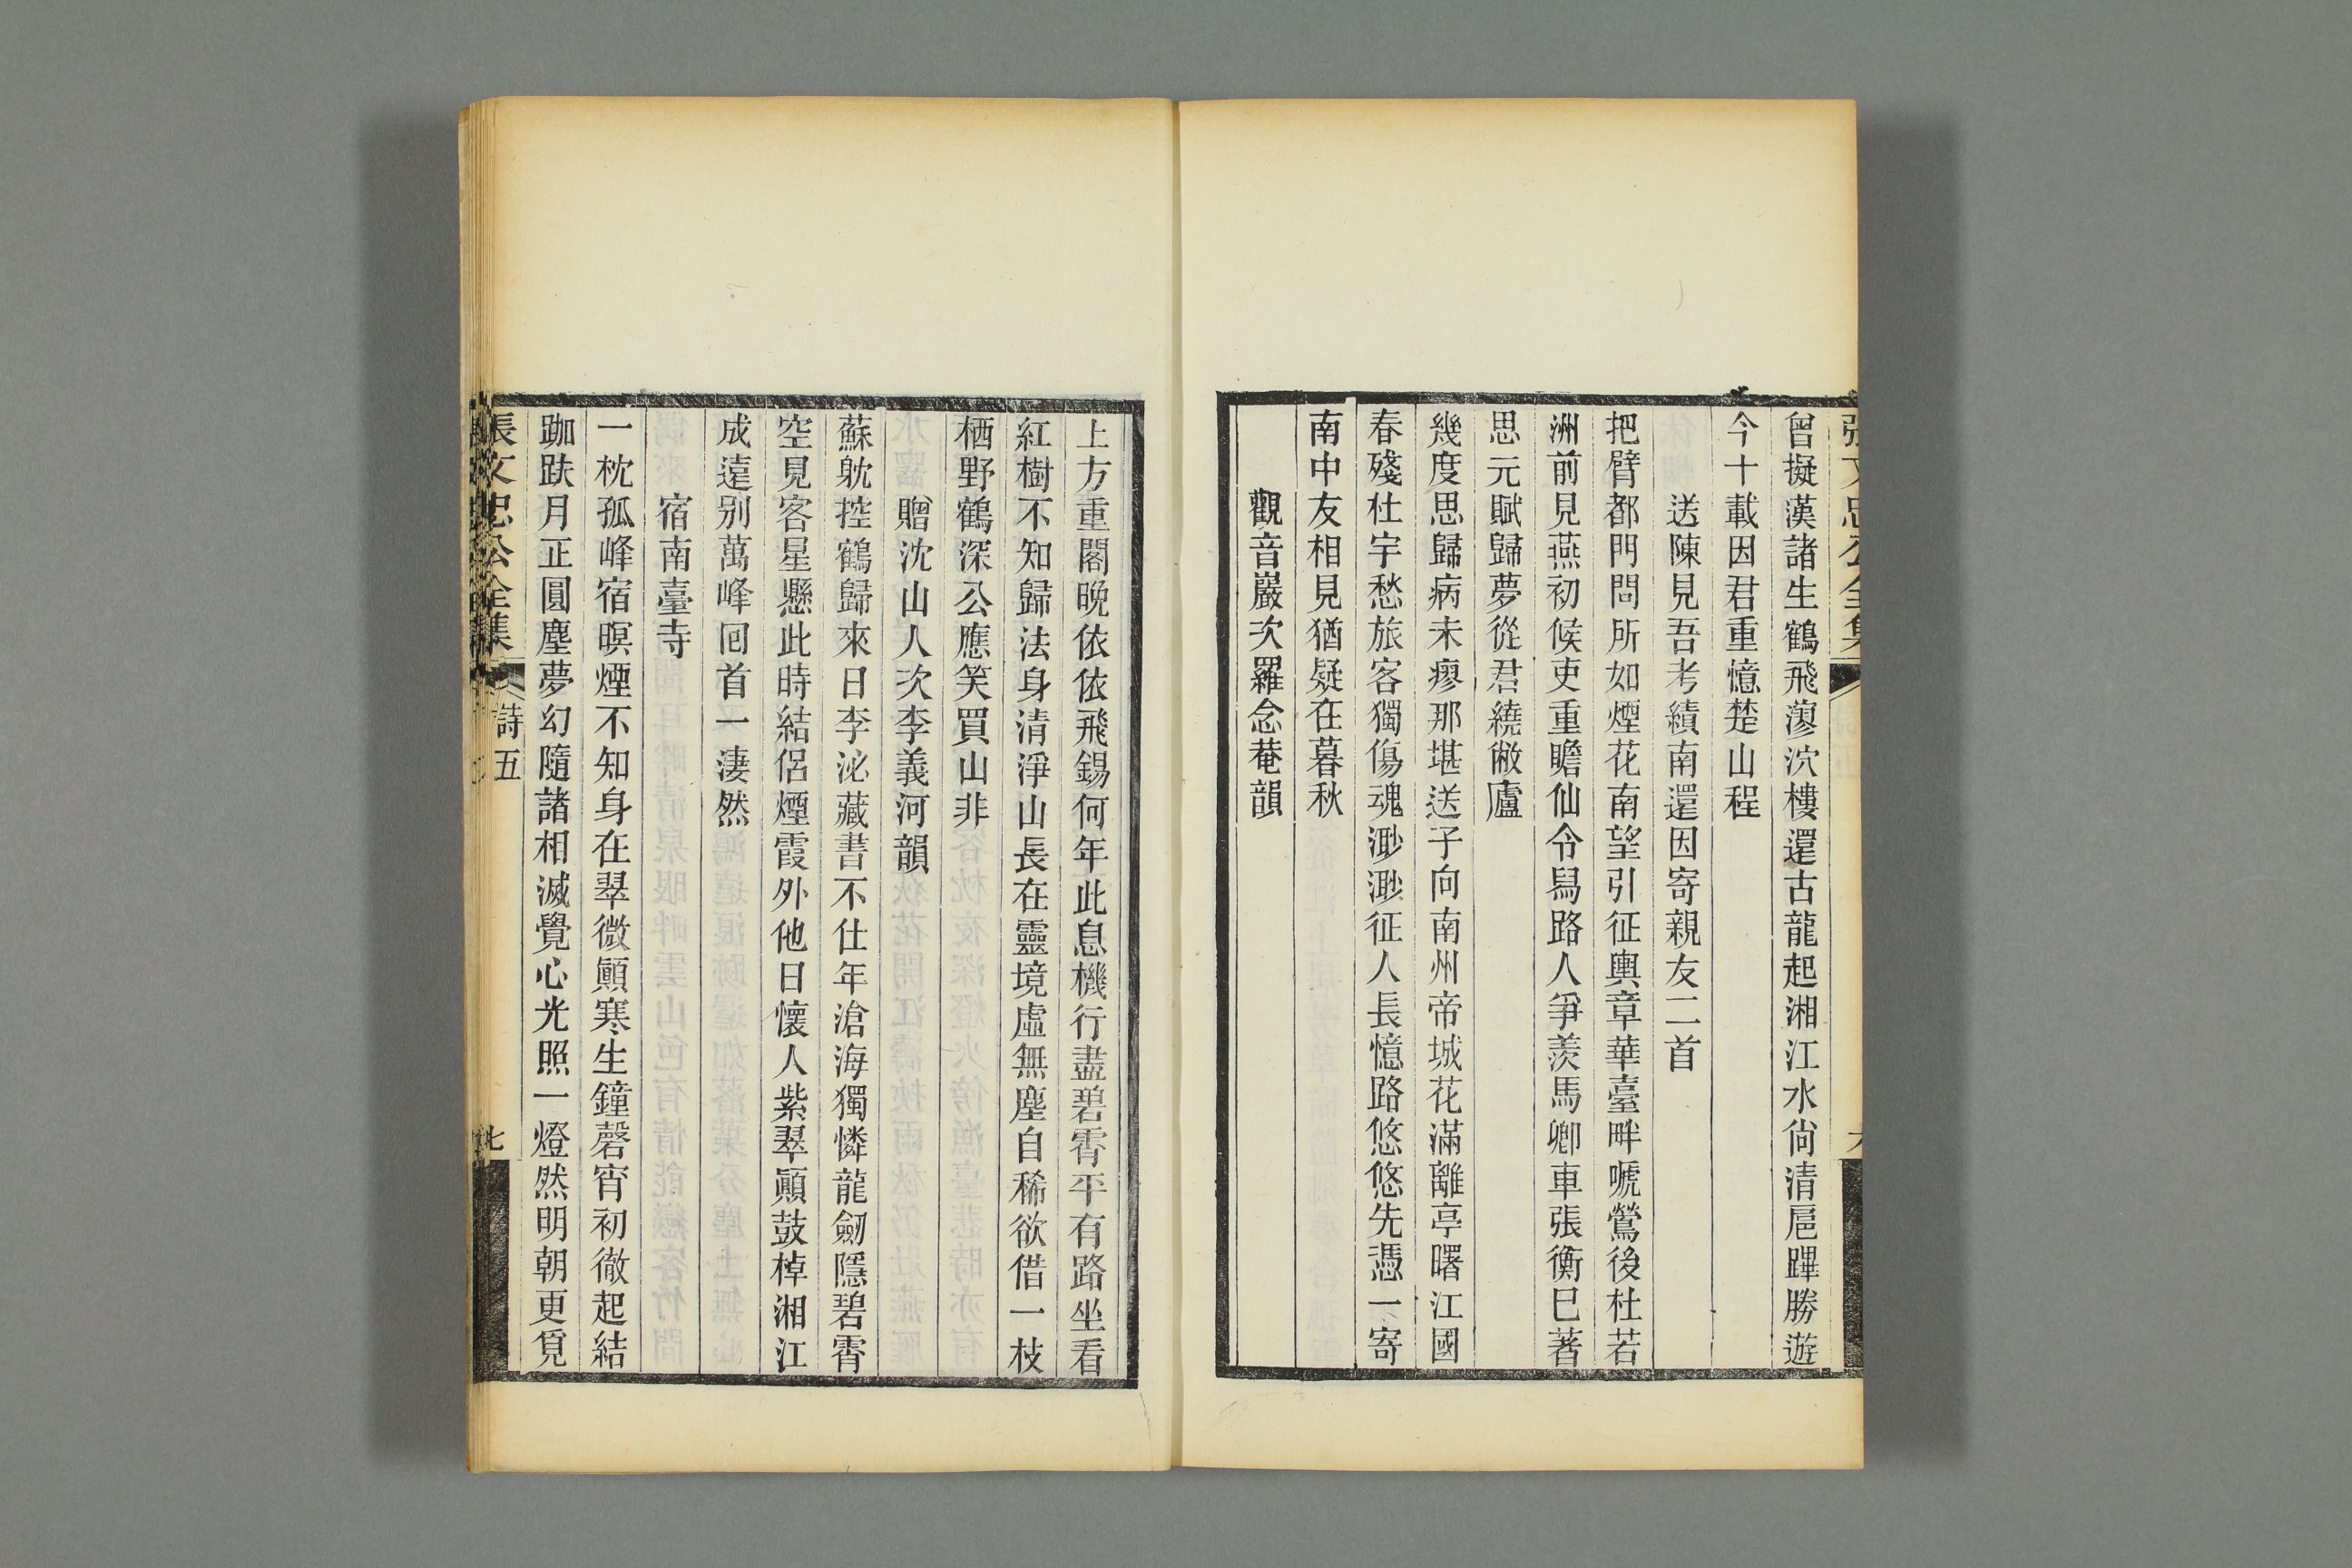 張文忠公全集
曾擬漢諸生鶴飛藻泬樓還古龍起湘江水尙清扈蹕勝遊
今十載因君重憶楚山程
送陳見吾考績南還因寄親友二首
把臂都門問所如煙花南望引征輿章華臺畔嗁鶯後杜若
洲前見燕初候吏重瞻仙令舃路人爭羨馬卿車張衡巳著
思元賦歸夢從君繞敝廬
幾度思歸病未瘳那堪送子向南州帝城花滿離亭曙江國
春殘杜宇愁旅客獨傷魂渺渺征人長憶路悠悠先憑一寄
南中友相見猶疑在暮秋
觀音巖次羅念菴韻
上方重閣晚依依飛錫何年此息機行盡碧霄平有路坐看
紅樹不知歸法身清淨山長在靈境虛無塵自稀欲借一枝
栖野鶴深公應笑買山非
贈沈山人次李義河韻
蘇躭控鶴歸來日李泌藏書不仕年滄海獨憐龍劒隱碧霄
空見客星懸此時結侶煙霞外他日懷人紫翠顚鼓棹湘江
成遠別萬峰囘首一淒然
宿南臺寺
一枕孤峰宿暝煙不知身在翠微顚寒生鐘磬宵初徹起結
跏趺月正圓塵夢幻隨諸相滅覺心光照一燈然明朝更覓
張文忠公全集
詩五
七